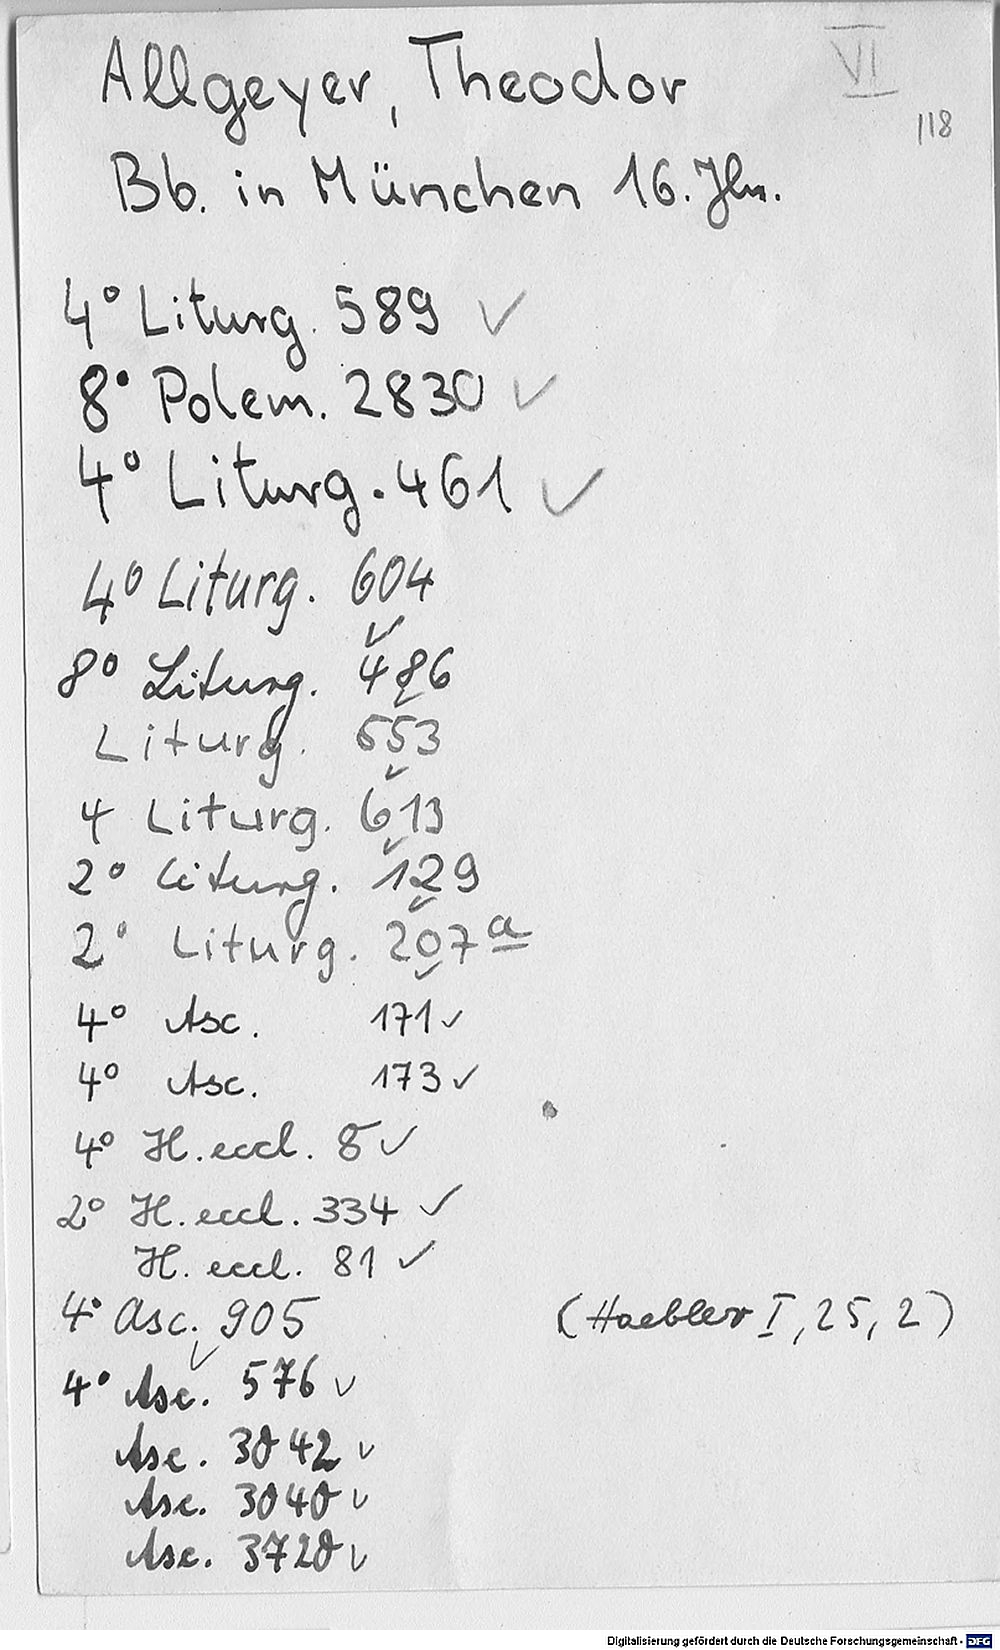 Allgeyer, Theodor
VI
118
Bb. in München 16. Jh.
4° Liturg. 589 ✓
8° Polem. 2830 ✓
4° Liturg. 461 ✓
4° Liturg. 604 ✓
8° Liturg. 486 ✓
Liturg. 553 ✓
4 Liturg. 613 ✓
2° Liturg. 129 ✓
2° Liturg. 207a ✓
4° Asc. 171 ✓
4° Asc. 173 ✓
4° H. eccl. 8 ✓
2° H. eccl. 334 ✓
H. eccl. 81 ✓
4° Asc. 905 ✓ (Haebler I, 25, 2)
4° Asc. 576 ✓
Asc. 3042 ✓
Asc. 3040 ✓
Asc. 3720 ✓
Digitalisierung gefördert durch die Deutsche Forschungsgemeinschaft - DFG